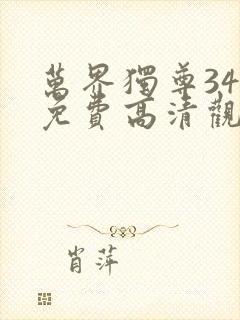 萬界獨尊34
免費高清觀
肖萍